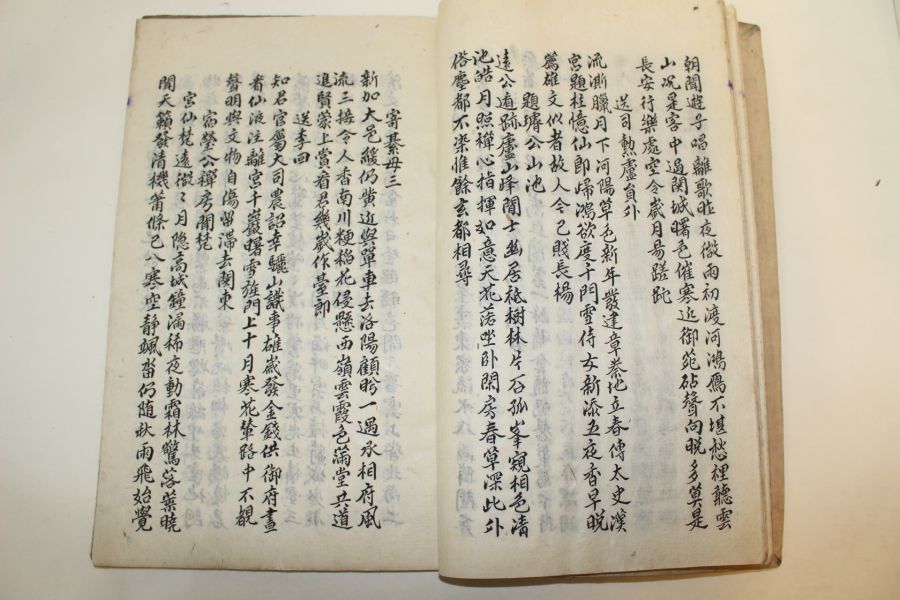 朝聞遊子唱離歌昨夜微雨初渡河鴻鴈不堪愁裡聽雲
山况是客中過関城曙色催寒近御苑砧聲向晚多莫是
長安行樂處空令歲月易蹉跎
送司勳盧員外
流澌臘月下河陽草色新年發建章秦地立春傳太史漢
宮題柱憶仙郎歸鴻欲度千門雪侍女新添五夜香早晚
薦雄文似者故人今已賤長楊
題璿公山池
遠公遁跡廬山岑開士幽居祗樹林片石孤峯窺相色清
池皓月照禪心指揮如意天花落坐卧閑房春草深此外
俗塵都不染惟餘玄都相尋
寄綦毋三
新加大邑綬仍黄近與單車去洛陽顧盻一過丞相府風
流三接令人香南川粳稻花侵懸西嶺雲霞色蒲堂共道
進賢蒙上賞看君幾歲作臺郎
送李回
知君官屬大司農詔幸驪山識事雄歲發金錢供御府晝
看仙液注離宮千巖曙雪旌門上十月寒花輦路中不覩
聲明與文物自傷留滯去関東
宿瑩公禪房聞梵
宮仙梵遠微〻月隐高城鐘漏稀夜動霜林驚落葉曉
聞天籟發清機蕭條已入寒空静颯沓仍随秋雨飛始覺